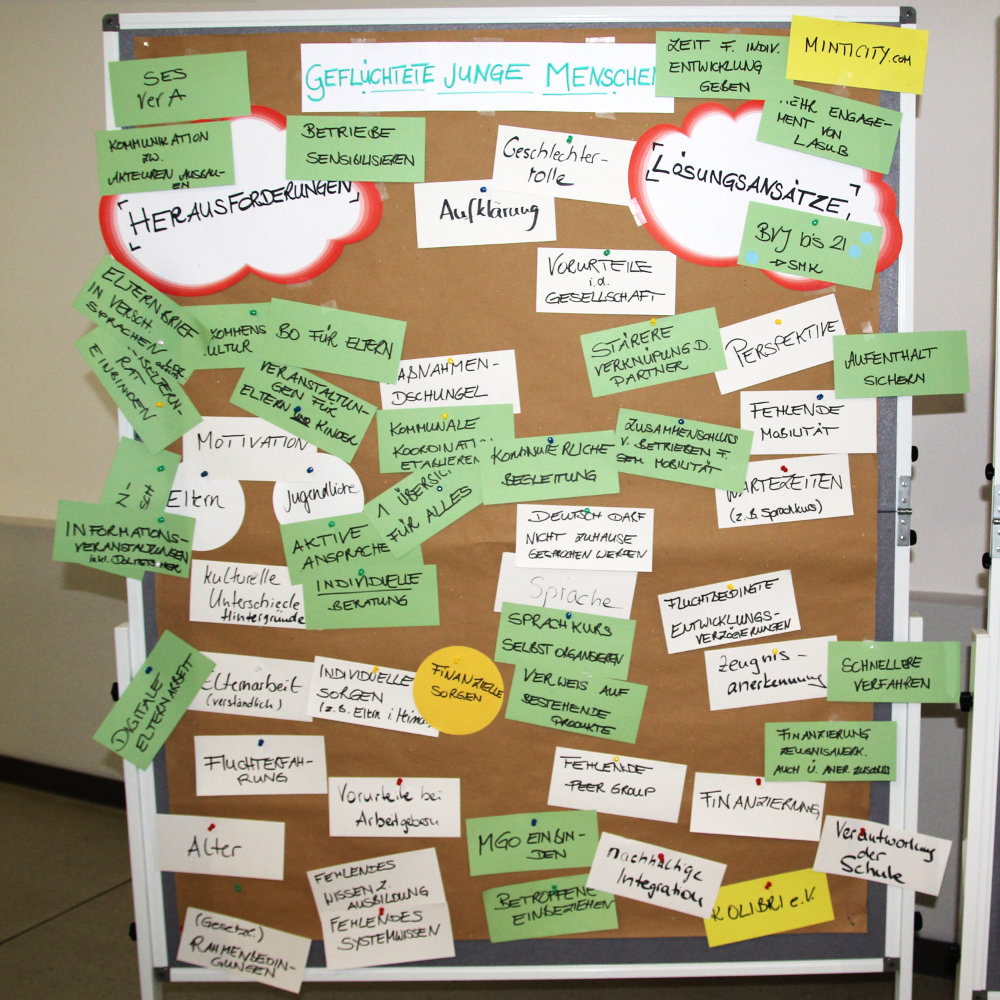 GEFLÜCHTETE JUNGE MENSCHEN
SES
VerA
ZEIT F. INDIV.
ENTWICKLUNG
GEBEN
MINTICITY.com
KOMMUNIKATION
ZW.
AKTEUREN AUSBAU-
EN
BETRIEBE
SENSIBILISIEREN
HERAUSFORDERUNGEN
Geschlechter-
rolle
Aufklärung
MEHR ENGAGE-
MENT VON
LASUB
LÖSUNGSANSÄTZE
BVJ bis 21
→SMK
VORURTEILE
i.d.
GESELLSCHAFT
ELTERNBRIEF
IN VERSCH.
SPRACHEN
RAT
EINBINDEN
KOMMENS
KULTUR
BO FÜR ELTERN
VERANSTALTUN-
GEN FÜR
ELTERN UND KINDER
MAßNAHMEN-
DSCHUNGEL
STÄRERE
VERKNÜPFUNG D.
PARTNER
PERSPEKTIVE
AUFENTHALT
SICHERN
MOTIVATION
Eltern
Jugendliche
KOMMUNALE
KOORDINATI
ETABLIEREN
KONTINUIERLICHE
BEGLEITUNG
ZUSAMMENSCHLUSS
V. BETRIEBEN F.
GEM. MOBILITÄT
FEHLENDE
MOBILITÄT
WARTEZEITEN
(z.B. Sprachkurs)
1 ÜBERSICHT
FÜR ALLES
AKTIVE
ANSPRACHE
INDIVIDUELLE
BERATUNG
INFORMATIONS-
VERANSTALTUNGEN
inkl. DOLMETSCHER
kulturelle
Unterschiede
Hintergründe
DEUTSCH DARF
NICHT ZUHAUSE
GESPROCHEN WERDEN
Sprache
SPRACHKURS
SELBST ORGANISIEREN
VERWEIS AUF
BESTEHENDE
PRODUKTE
FLUCHTBEDINGTE
ENTWICKLUNGS-
VERZÖGERUNGEN
Zeugnis-
anerkennung
SCHNELLERE
VERFAHREN
DIGITALE
ELTERNARBEIT
Elternarbeit
(verständlich)
INDIVIDUELLE
SORGEN
(z.B. Eltern i. Heimat
FINANZIELLE
SORGEN
FINANZIERUNG
ZEUGNISANERK.
FLUCHTERFAH-
RUNG
Vorurteile bei
Arbeitgebern
FEHLENDE
PEER GROUP
FINANZIERUNG
Alter
FEHLENDES
WISSEN Z.
AUSBILDUNG
FEHLENDES
SYSTEMWISSEN
MGO EINBIN-
DEN
BETROFFENE
EINBEZIEHEN
nachhaltige
Integration
Verantwortung
der
Schule
KOLIBRI e.V.
(Gesetzl.)
RAHMENBEDIN-
GUNGEN